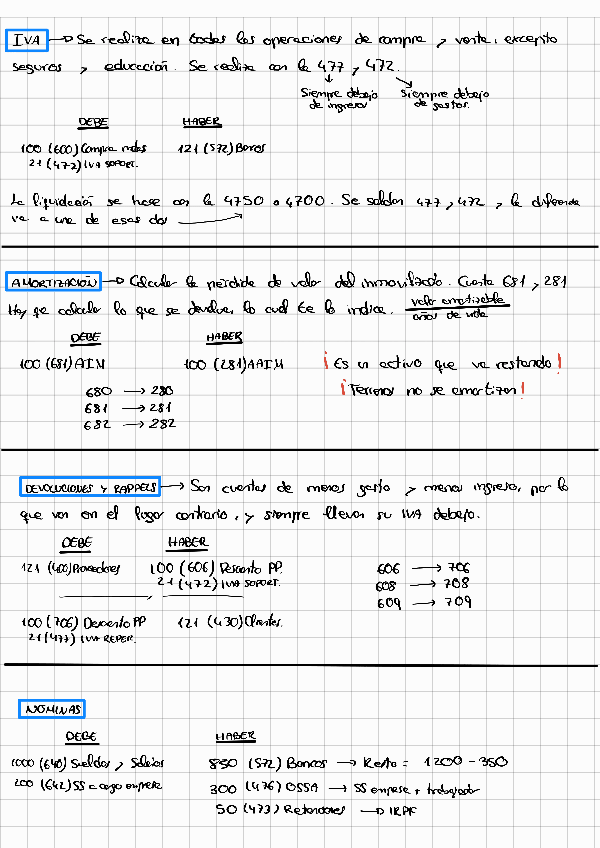 IVA → Se realiza en todas las operaciones de compra y venta, excepto
seguros y educación. Se realiza con la 477 y 472.
Siempre debajo de ingresos
Siempre debajo de gastos.
DEBE HABER
100 (600) Compra mdas 121 (572) Bancos
21 (472) IVA SOPORT.
La liquidación se hace con la 4750 o 4700. Se saldan 477 y 472 y la diferencia
va a una de esas dos →
AMORTIZACIÓN → Calcular la perdida de valor del inmovilizado. Cuenta 681 y 281
Hay que calcular lo que se devalua, lo cual te lo indica. valor amortizable
años de vida
DEBE HABER
100 (681) AIM 100 (281) AAIM ¡Es un activo que va restando!
680 → 280 ¡Terrenos no se amortizan!
681 → 281
682 → 282
DEVOLUCIONES Y RAPPELS → Son cuentas de menos gasto y menos ingreso, por lo
que van en el lugar contrario, y siempre llevan su IVA debajo.
DEBE HABER
121 (400) Proveedores 100 (606) Descuento PP 606 → 706
21 (472) IVA SOPORT. 608 → 708
609 → 709
100 (706) Descuento PP 121 (430) Clientes.
21 (477) IVA REPER.
NOMINAS
DEBE HABER
1000 (640) Sueldos y Salarios 850 (572) Bancos → Resto = 1200 - 350
200 (642) SS a cargo empresa 300 (476) OSSA → SS empresa + trabajador
50 (473) Retenciones → IRPF